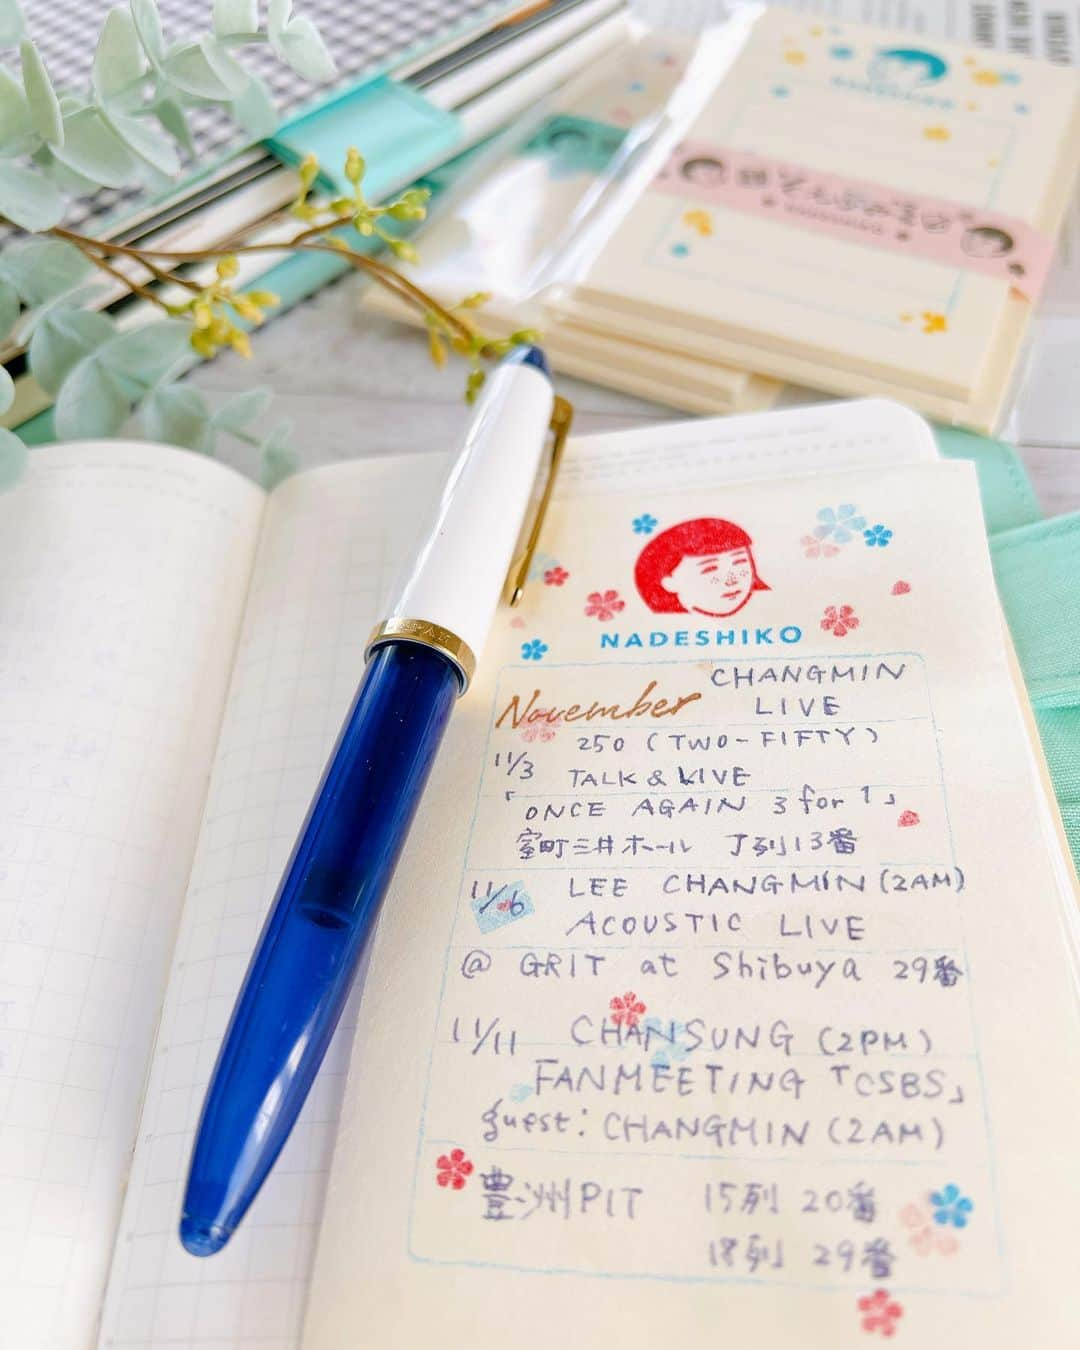 NADESHIKO
NADESHIKO
November CHANGMIN
LIVE
11/3 250 (TWO-FIFTY)
TALK & LIVE
「ONCE AGAIN 3 for 1」
室町三井ホール 丁列13番
11/6 LEE CHANGMIN (2AM)
ACOUSTIC LIVE
@ GRIT at Shibuya 29番
11/11 CHANSUNG (2PM)
FANMEETING 「CSBS」
guest: CHANGMIN (2AM)
豊洲PIT 15列 20番
18列 29番